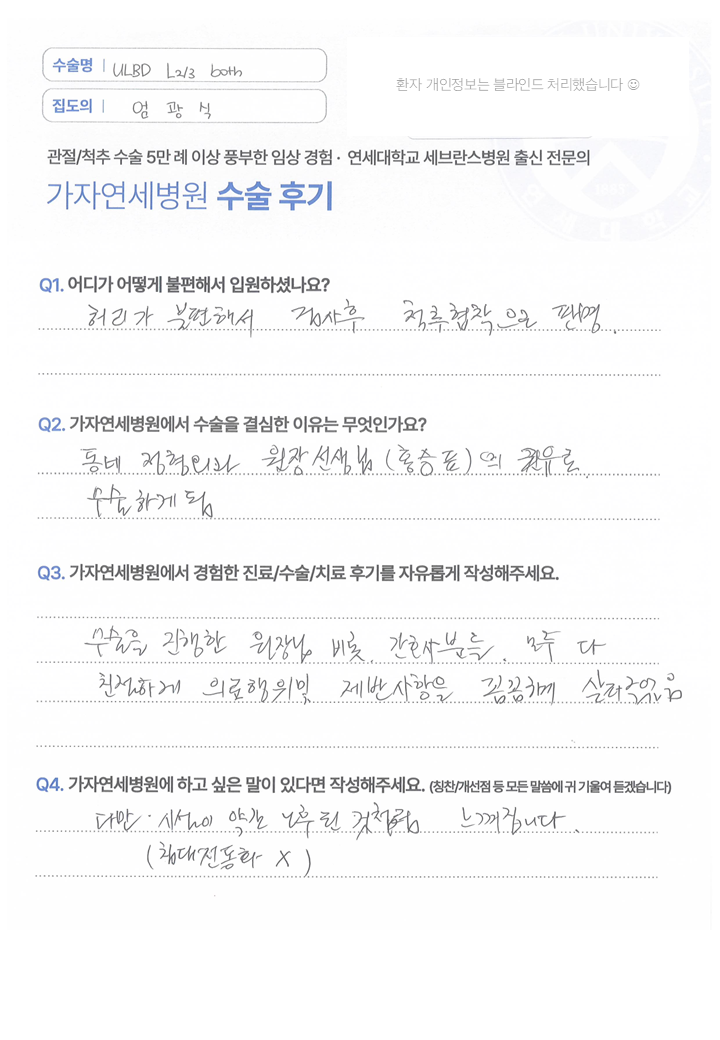 수술명 | ULBD L2/3 both
집도의 | 엄광식
환자 개인정보는 블라인드 처리했습니다 ☺
관절/척추 수술 5만 례 이상 풍부한 임상 경험 · 연세대학교 세브란스병원 출신 전문의
가자연세병원 수술 후기
Q1. 어디가 어떻게 불편해서 입원하셨나요?
허리가 불편해서 검사후 척추협착으로 판명.
Q2. 가자연세병원에서 수술을 결심한 이유는 무엇인가요?
동네 정형외과 원장선생님(홍승표)의 권유로
수술하게 됨
Q3. 가자연세병원에서 경험한 진료/수술/치료 후기를 자유롭게 작성해주세요.
수술을 진행한 원장님 비롯, 간호사분들, 모두 다
친절하게 의료행위및 제반사항을 꼼꼼하게 살펴주었음
Q4. 가자연세병원에 하고 싶은 말이 있다면 작성해주세요. (칭찬/개선점 등 모든 말씀에 귀 기울여 듣겠습니다)
다만 · 시설이 약간 노후된 것처럼 느껴집니다.
(침대전동화 X)